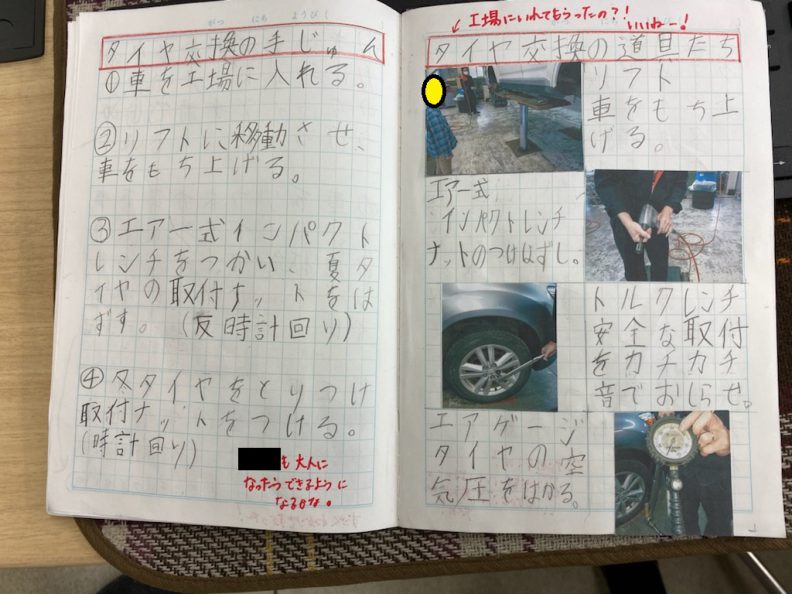 がつ にち ようび
タイヤ交換の手じゅん
①車を工場に入れる。
②リフトに移動させ、
車をもち上げる。
③エアー式インパクト
レンチをつかい、夏タ
イヤの取付ナットをは
ずす。(反時計回り)
④冬タイヤをとりつけ
取付ナットをつける。
(時計回り)
も大人に
なったらできるように
なるかな。
工場にいれてもらったの?!
いいねー!
タイヤ交換の道具たち
リフト
車をもち上
げる。
エアー式
インパクトレンチ
ナットのつけはずし。
トルクレンチ
安全な取付
をカチカチ
音でおしらせ。
エアゲージ
タイヤの空
気圧をはかる。